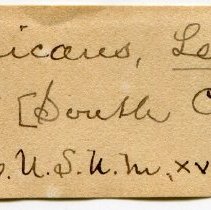 icares, Le
[South C
. U.S.N.M., xv